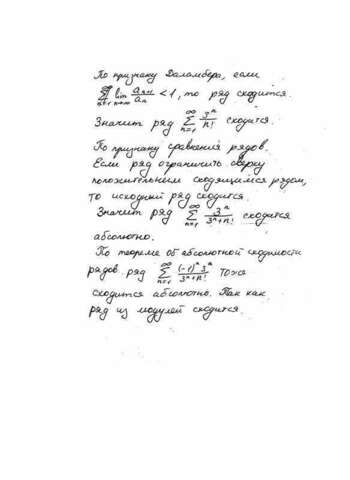 По признаку Даламбера, если
∑_{n=1}^{∞} lim_{n→∞} a_{n+1}/a_n < 1, то ряд сходится.
Значит ряд ∑_{n=1}^{∞} 3^n/n! сходится.
По признаку сравнения рядов.
Если ряд ограничить сверху
положительным сходящимся рядом,
то исходный ряд сходится.
Значит ряд ∑_{n=1}^{∞} 3^n/(3^n+n!) сходится
абсолютно.
По теореме об абсолютной сходимости
рядов ряд ∑_{n=1}^{∞} (-1)^n 3^n/(3^n+n!) тоже
сходится абсолютно. Так как
ряд из модулей сходится.